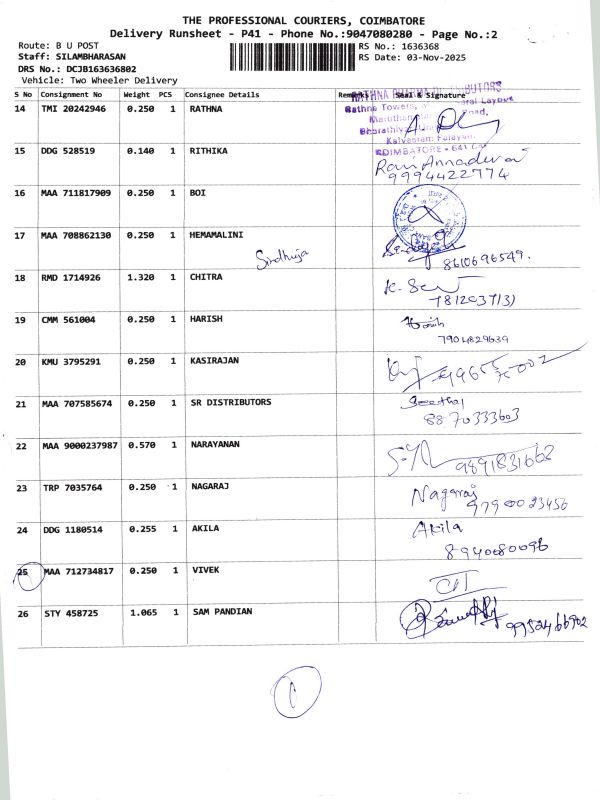 THE PROFESSIONAL COURIERS, COIMBATORE
Delivery Runsheet - P41 - Phone No.:9047080280 - Page No.:2
Route: B U POST
RS No.: 1636368
Staff: SILAMBHARASAN
RS Date: 03-Nov-2025
DRS No.: DCJB163636802
Vehicle: Two Wheeler Delivery
S No Consignment No Weight PCS Consignee Details Remarks Seal & Signature
14 TMI 20242946 0.250 1 RATHNA
RATHNA
Rathna Towers, Layout
Road,
Kalveeram Palayam
COIMBATORE - 641
15 DDG 528519 0.140 1 RITHIKA
9994422774
16 MAA 711817909 0.250 1 BOI
17 MAA 708862130 0.250 1 HEMAMALINI
Sindhuja
8610696549.
18 RMD 1714926 1.320 1 CHITRA
K. Sel
7812037131
19 CMM 561004 0.250 1 HARISH
Harish
7904829639
20 KMU 3795291 0.250 1 KASIRAJAN
21 MAA 707585674 0.250 1 SR DISTRIBUTORS
8870333603
22 MAA 9000237987 0.570 1 NARAYANAN
9891831663
23 TRP 7035764 0.250 1 NAGARAJ
Nagaraj
9790023456
24 DDG 1180514 0.255 1 AKILA
Akila
8940080096
25 MAA 712734817 0.250 1 VIVEK
26 STY 458725 1.065 1 SAM PANDIAN
9952466902